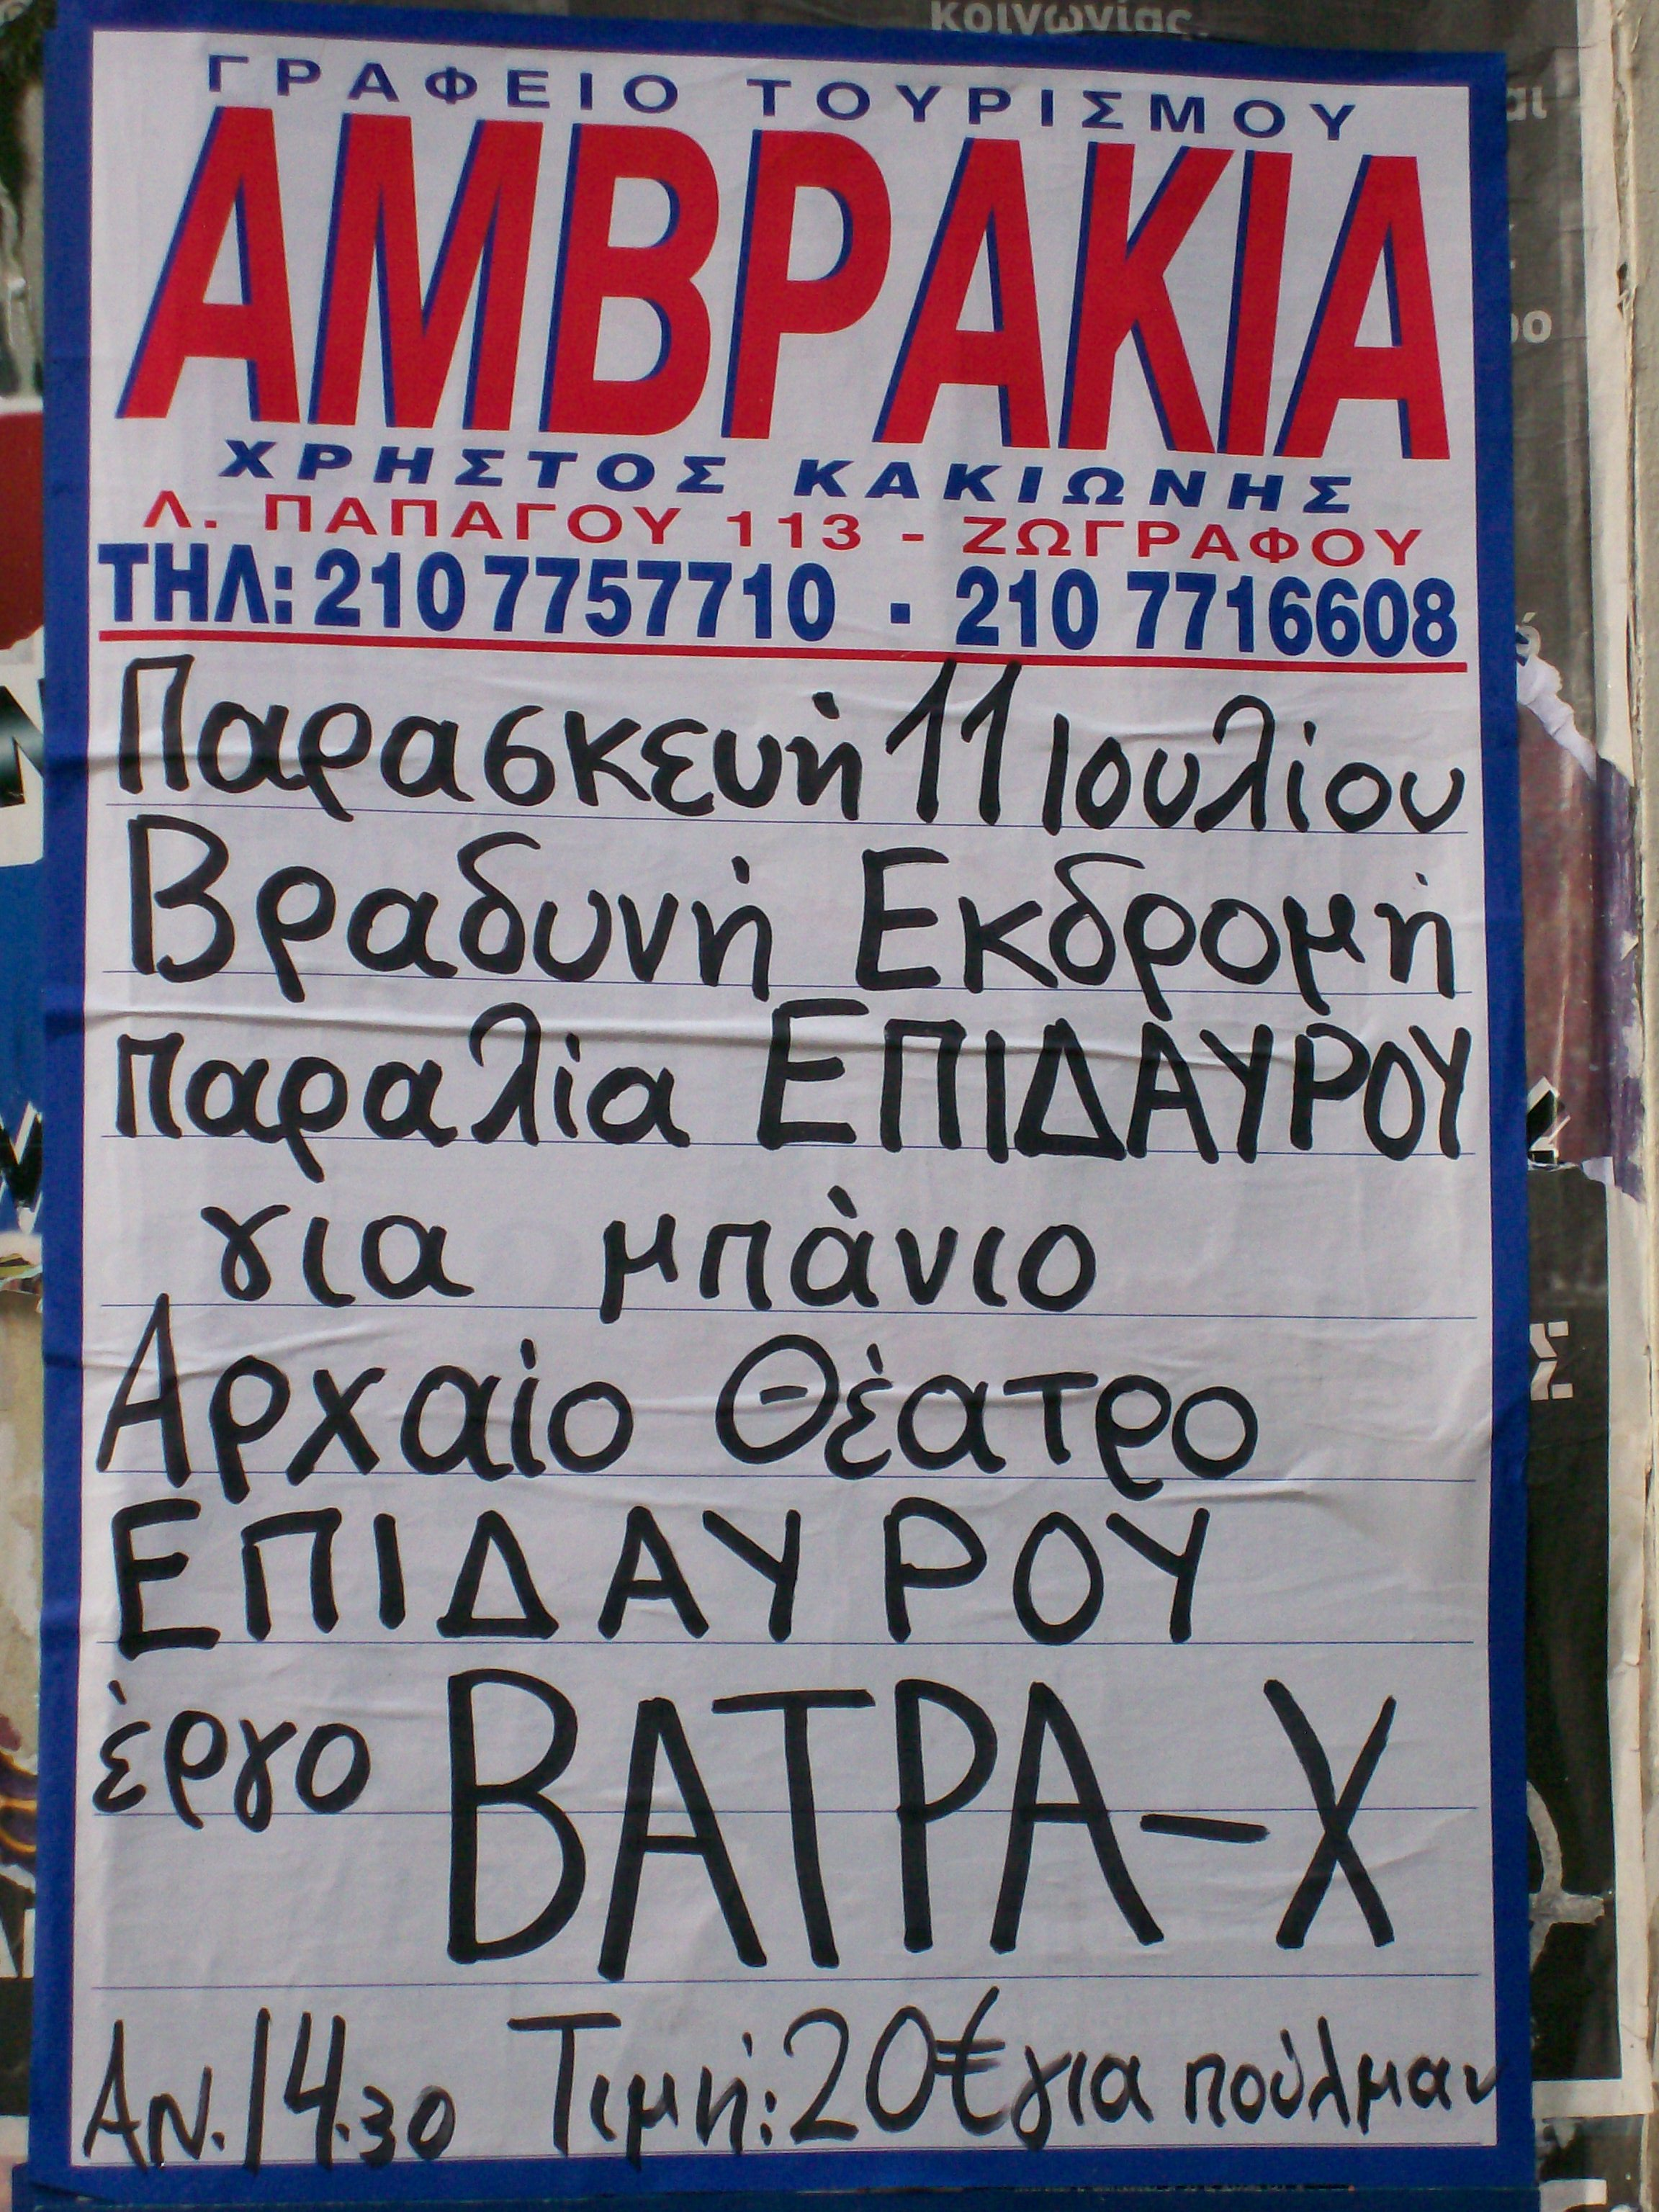 κοινωνίας
ΓΡΑΦΕΙΟ ΤΟΥΡΙΣΜΟΥ
ΑΜΒΡΑΚΙΑ
ΧΡΗΣΤΟΣ ΚΑΚΙΩΝΗΣ
Λ. ΠΑΠΑΓΟΥ 113 - ΖΩΓΡΑΦΟΥ
ΤΗΛ: 210 7757710 · 210 7716608
Παρασκευή 11 Ιουλίου
Βραδυνή Εκδρομή
παραλία ΕΠΙΔΑΥΡΟΥ
για μπάνιο
Αρχαίο Θέατρο
ΕΠΙΔΑΥΡΟΥ
έργο ΒΑΤΡΑ-Χ
ΑΝ. 14.30 Τιμή: 20€ για πούλμαν